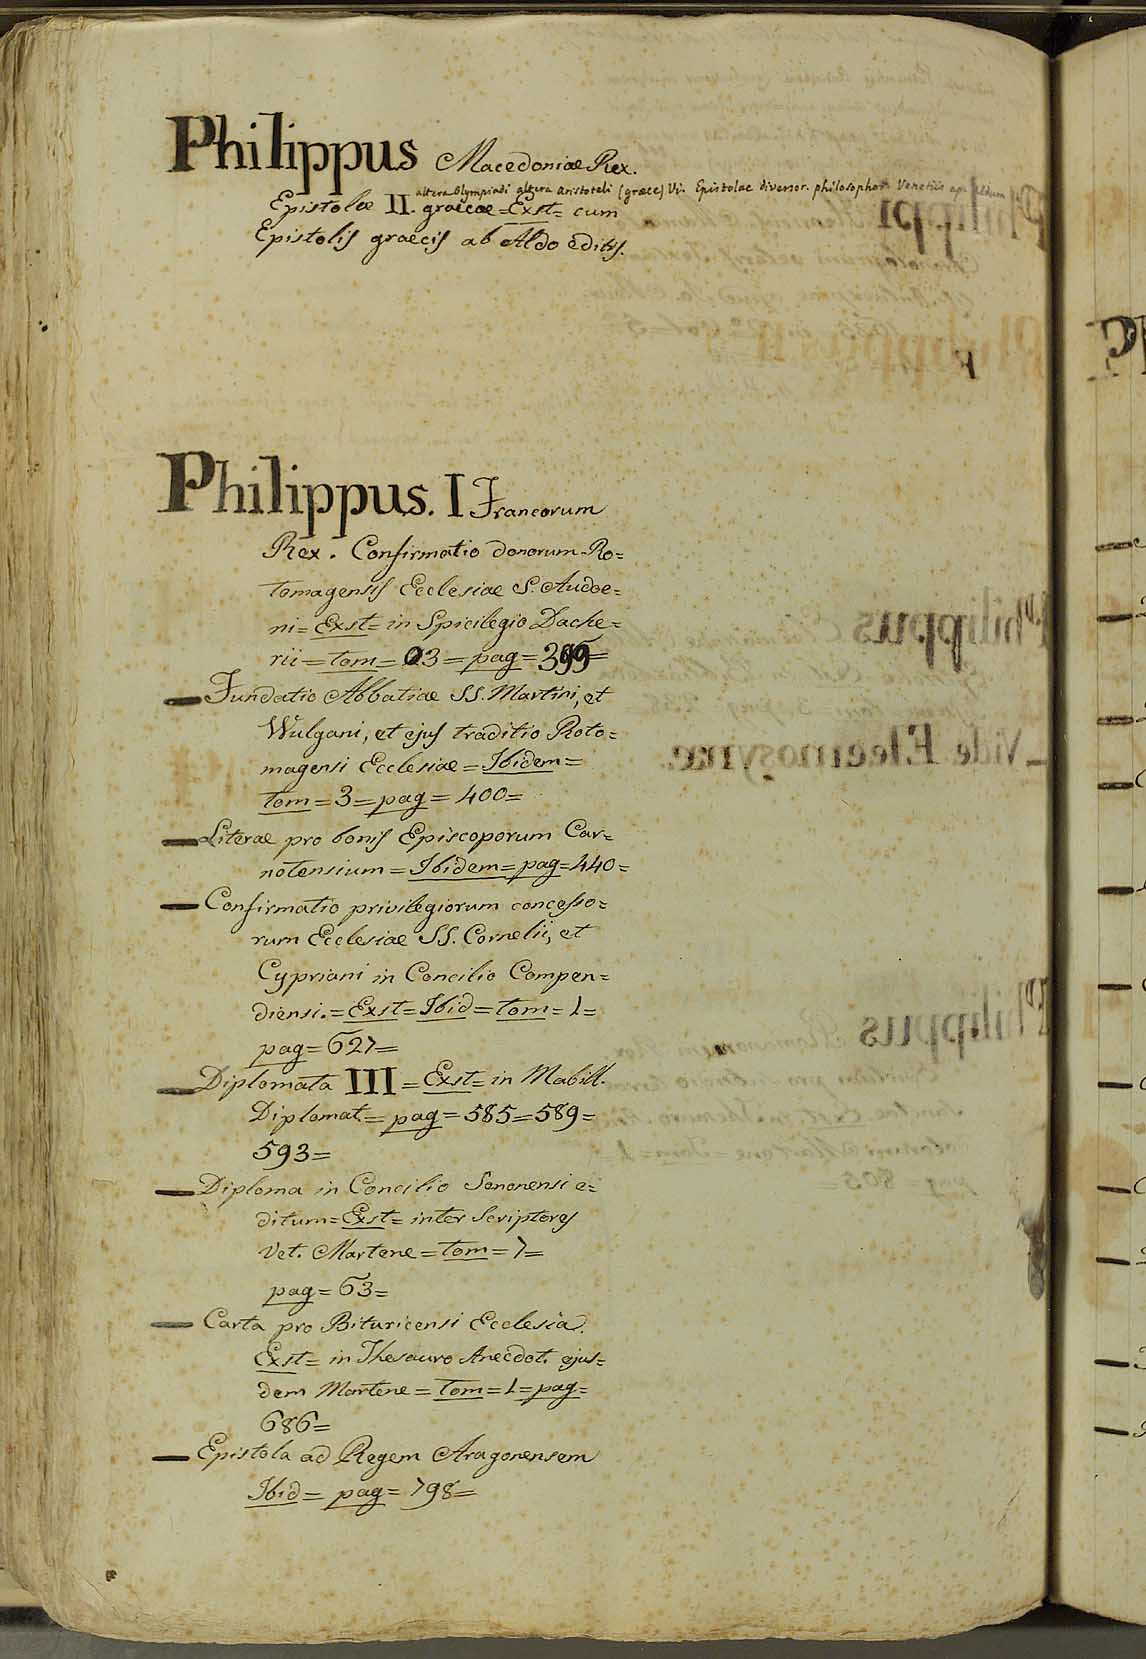 Philippus Macedoniæ Rex.
altera Olympiadi altera Aristoteli (græce) Vi. Epistolae diversor. philosophor. Venetiis ap. Aldum
Epistolæ II. græcæ = Exst = cum
Epistolis græcis ab Aldo editis.
Philippus. I Francorum
Rex. Confirmatio donorum Ro=
tomagensis Ecclesiæ S. Audoe=
ni = Exst = in Spicilegio Dache=
rii = tom = 3 = pag = 399 =
Fundatio Abbatiæ SS. Martini, et
Wulgani, et ejus traditio Roto=
magensi Ecclesiæ = Ibidem =
tom = 3 = pag = 400 =
Literæ pro bonis Episcoporum Car=
notensium = Ibidem = pag = 440 =
Confirmatio privilegiorum concesso=
rum Ecclesiæ SS. Cornelii, et
Cypriani in Concilio Compen=
diensi. = Exst = Ibid = tom = 1 =
pag = 627 =
Diplomata III = Exst = in Mabill.
Diplomat = pag = 585 = 589 =
593 =
Diploma in Concilio Senonensi e=
ditum = Exst = inter Scriptores
Vet. Martene = tom = 7 =
pag = 63 =
Carta pro Bituricensi Ecclesia.
Exst = in Thesauro Anecdot. ejus=
dem Martene = tom = 1 = pag =
686 =
Epistola ad Regem Aragonensem
Ibid = pag = 798 =